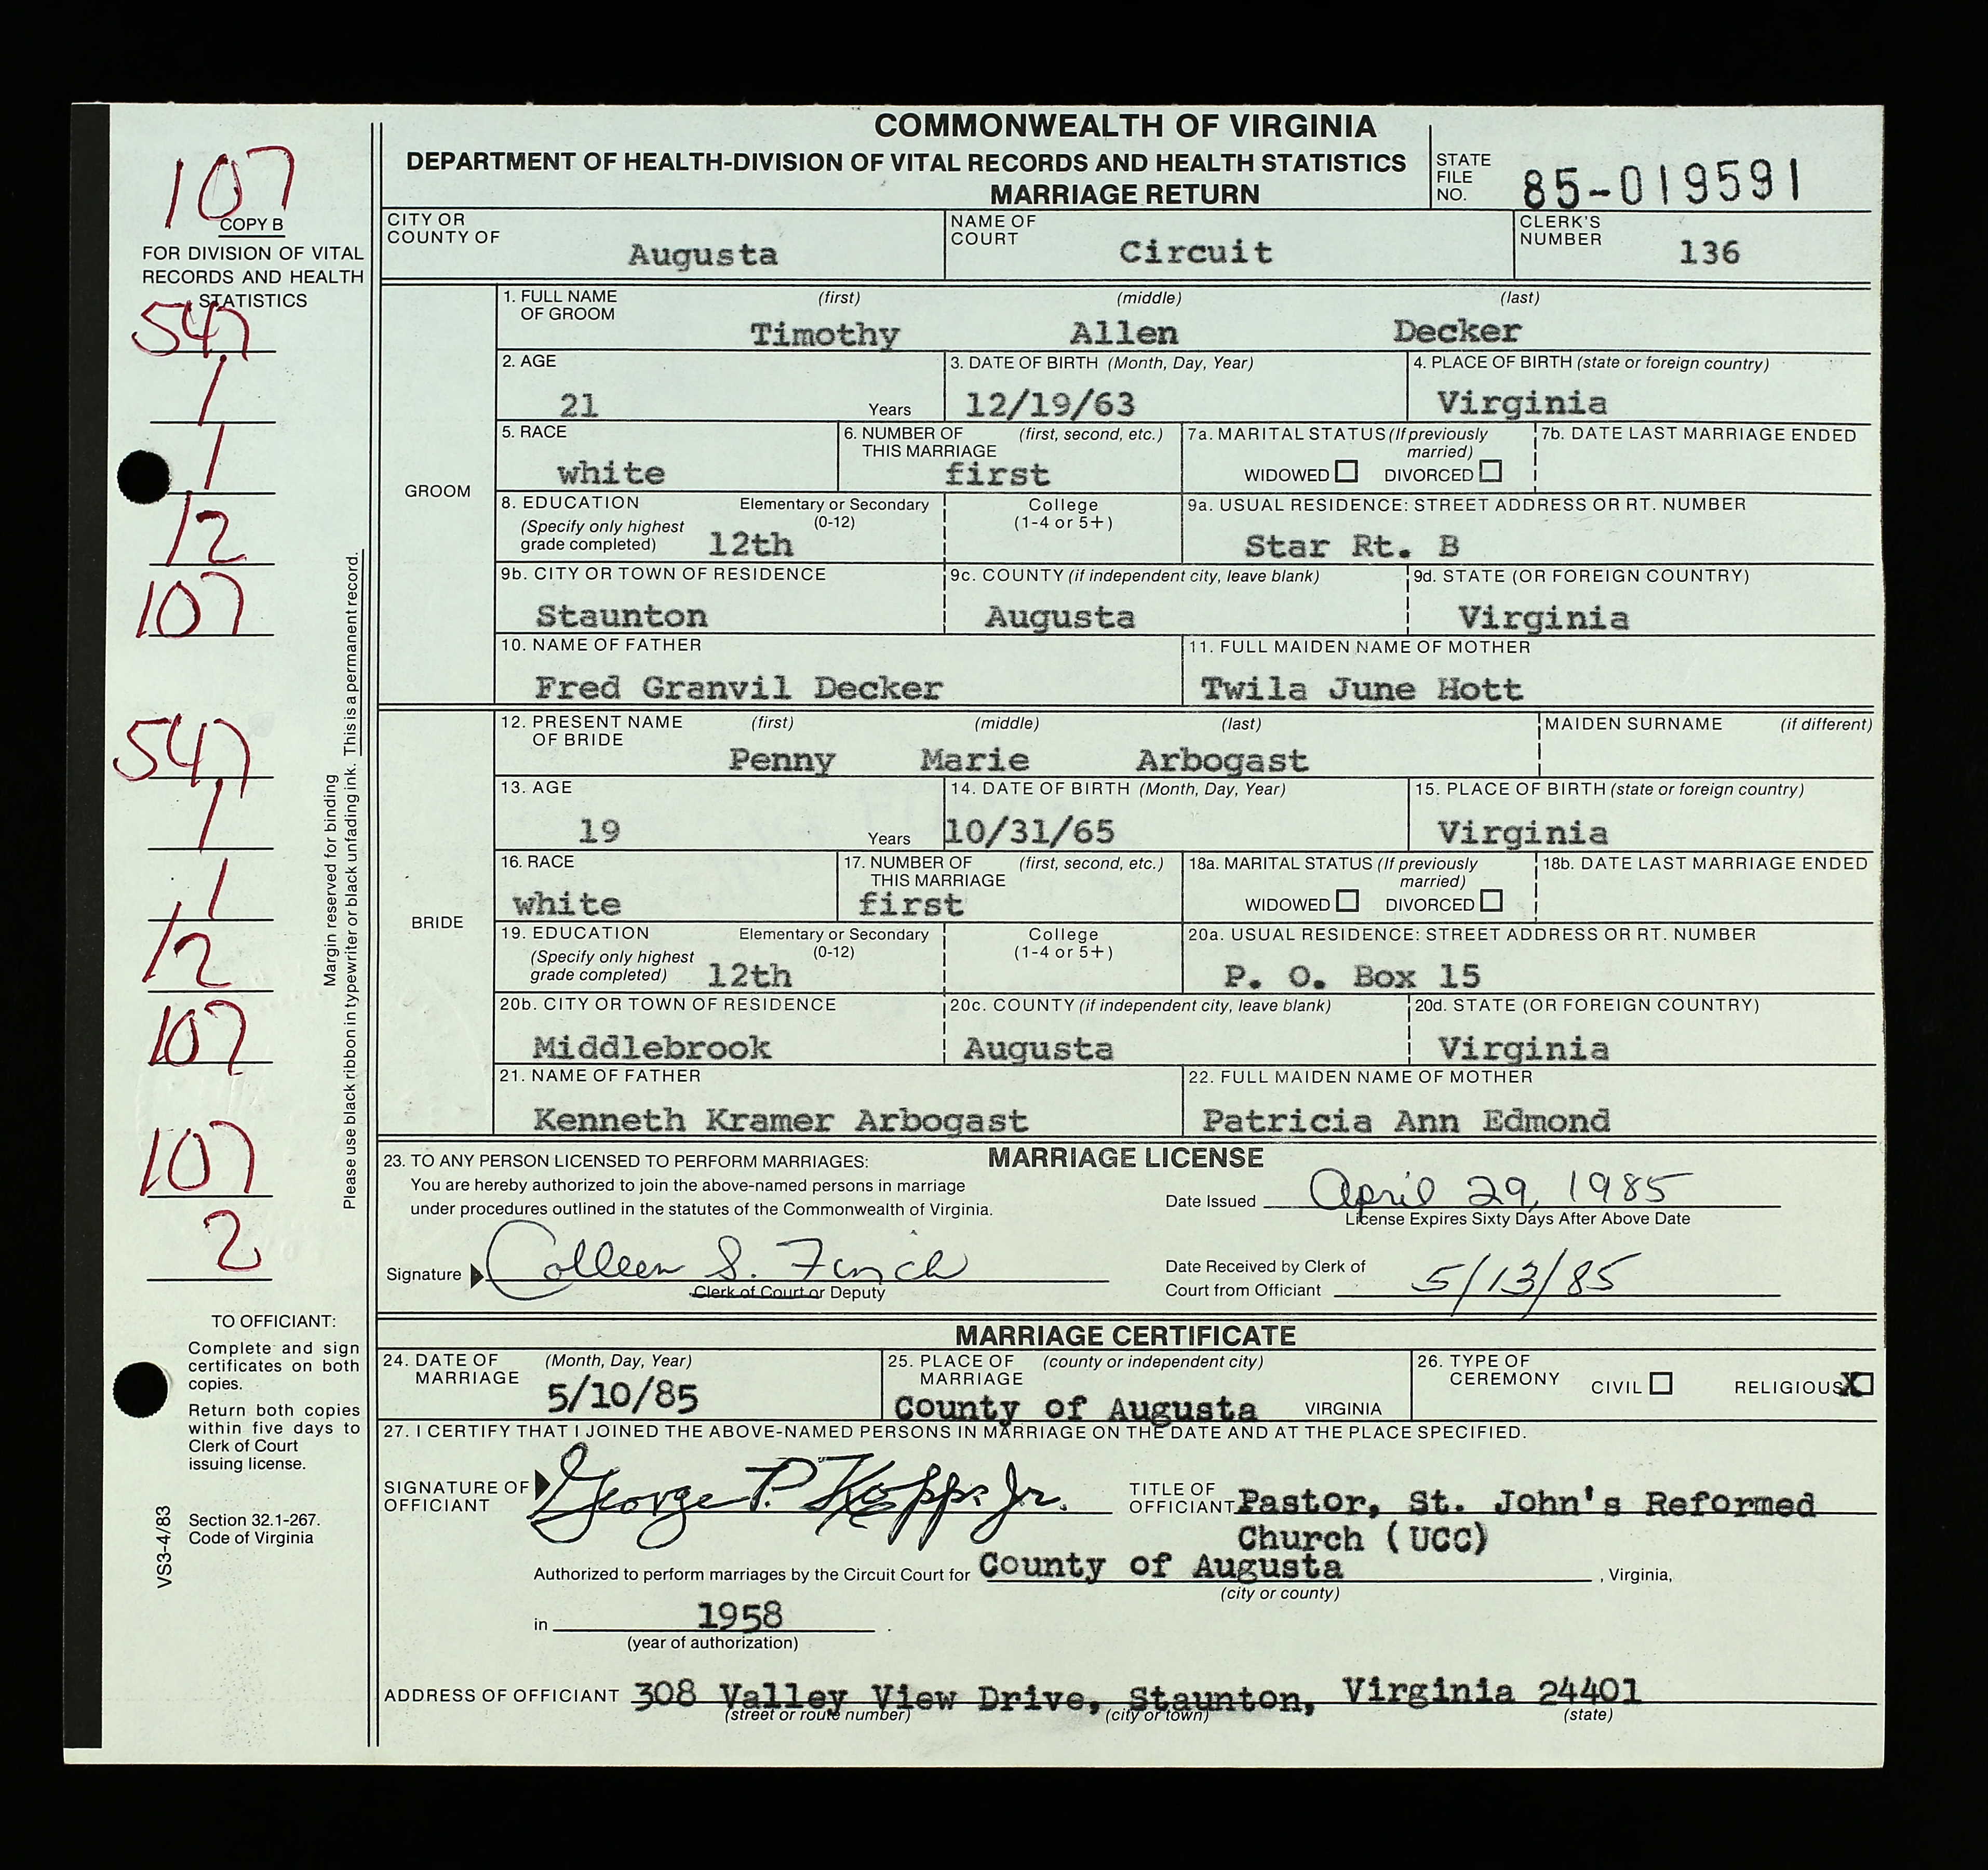 COMMONWEALTH OF VIRGINIA
DEPARTMENT OF HEALTH-DIVISION OF VITAL RECORDS AND HEALTH STATISTICS
MARRIAGE RETURN
STATE FILE NO. 85-019591
107
COPY B
FOR DIVISION OF VITAL
RECORDS AND HEALTH
STATISTICS
547
1
1
12
107
547
1
1
12
107
107
2
Margin reserved for binding
Please use black ribbon in typewriter or black unfading ink. This is a permanent record.
TO OFFICIANT:
Complete and sign
certificates on both
copies.
Return both copies
within five days to
Clerk of Court
issuing license.
Section 32.1-267.
Code of Virginia
VS3-4/83
CITY OR COUNTY OF Augusta
NAME OF COURT Circuit
CLERK'S NUMBER 136
GROOM
1. FULL NAME OF GROOM (first) (middle) (last)
Timothy Allen Decker
2. AGE 21 Years
3. DATE OF BIRTH (Month, Day, Year) 12/19/63
4. PLACE OF BIRTH (state or foreign country) Virginia
5. RACE white
6. NUMBER OF THIS MARRIAGE (first, second, etc.) first
7a. MARITAL STATUS (If previously married) WIDOWED DIVORCED
7b. DATE LAST MARRIAGE ENDED
8. EDUCATION (Specify only highest grade completed) Elementary or Secondary (0-12) 12th College (1-4 or 5+)
9a. USUAL RESIDENCE: STREET ADDRESS OR RT. NUMBER Star Rt. B
9b. CITY OR TOWN OF RESIDENCE Staunton
9c. COUNTY (if independent city, leave blank) Augusta
9d. STATE (OR FOREIGN COUNTRY) Virginia
10. NAME OF FATHER Fred Granvil Decker
11. FULL MAIDEN NAME OF MOTHER Twila June Hott
BRIDE
12. PRESENT NAME OF BRIDE (first) (middle) (last)
Penny Marie Arbogast
MAIDEN SURNAME (if different)
13. AGE 19 Years
14. DATE OF BIRTH (Month, Day, Year) 10/31/65
15. PLACE OF BIRTH (state or foreign country) Virginia
16. RACE white
17. NUMBER OF THIS MARRIAGE (first, second, etc.) first
18a. MARITAL STATUS (If previously married) WIDOWED DIVORCED
18b. DATE LAST MARRIAGE ENDED
19. EDUCATION (Specify only highest grade completed) Elementary or Secondary (0-12) 12th College (1-4 or 5+)
20a. USUAL RESIDENCE: STREET ADDRESS OR RT. NUMBER P. O. Box 15
20b. CITY OR TOWN OF RESIDENCE Middlebrook
20c. COUNTY (if independent city, leave blank) Augusta
20d. STATE (OR FOREIGN COUNTRY) Virginia
21. NAME OF FATHER Kenneth Kramer Arbogast
22. FULL MAIDEN NAME OF MOTHER Patricia Ann Edmond
MARRIAGE LICENSE
23. TO ANY PERSON LICENSED TO PERFORM MARRIAGES:
You are hereby authorized to join the above-named persons in marriage
under procedures outlined in the statutes of the Commonwealth of Virginia.
Date Issued April 29, 1985
License Expires Sixty Days After Above Date
Signature Colleen S. Finch
Clerk of Court or Deputy
Date Received by Clerk of
Court from Officiant 5/13/85
MARRIAGE CERTIFICATE
24. DATE OF MARRIAGE (Month, Day, Year) 5/10/85
25. PLACE OF MARRIAGE (county or independent city) County of Augusta VIRGINIA
26. TYPE OF CEREMONY CIVIL RELIGIOUS X
27. I CERTIFY THAT I JOINED THE ABOVE-NAMED PERSONS IN MARRIAGE ON THE DATE AND AT THE PLACE SPECIFIED.
SIGNATURE OF OFFICIANT George P. Kopps Jr.
TITLE OF OFFICIANT Pastor, St. John's Reformed
Church (UCC)
Authorized to perform marriages by the Circuit Court for County of Augusta , Virginia,
(city or county)
in 1958 .
(year of authorization)
ADDRESS OF OFFICIANT 308 Valley View Drive, Staunton, Virginia 24401
(street or route number) (city or town) (state)